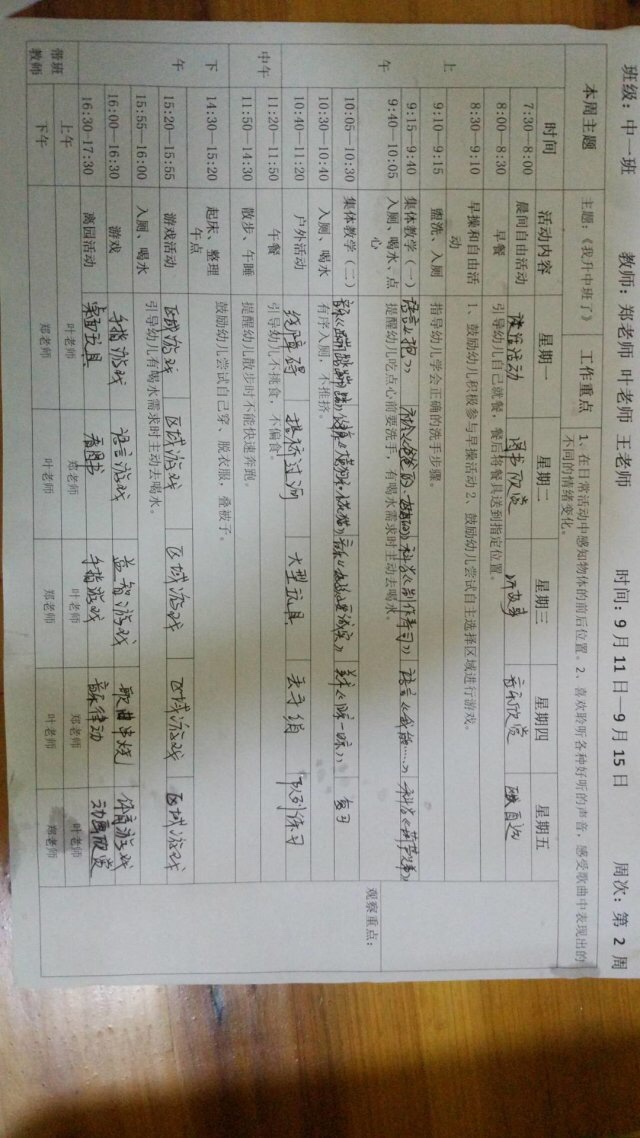 班级：中一班 教师：郑老师 叶老师 王老师 时间：9月11日—9月15日 周次：第 2 周
本周主题 主题：《我升中班了》 工作重点 1、在日常活动中感知物体的前后位置。2、喜欢聆听各种好听的声音，感受歌曲中表现出的
不同的情绪变化。
时间 活动内容 星期一 星期二 星期三 星期四 星期五
上午
7:30—8:00 晨间自由活动 活动 图书阅览 听故事 音乐欣赏
8:00—8:30 早餐 引导幼儿自己就餐，餐后将餐具送到指定位置。
8:30—9:10 早操和自由活动 1、鼓励幼儿积极参与早操活动 2、鼓励幼儿尝试自主选择区域进行游戏。
9:10—9:15 盥洗、入厕 指导幼儿学会正确的洗手步骤。
9:15—9:40 集体教学（一） 科学《制作寿司》 语言《我能……》
9:40—10:05 入厕、喝水、点心 提醒幼儿吃点心前要洗手，有喝水需求时主动去喝水。
观察重点：
10:05—10:30 集体教学（二） 美术《 复习
10:30—10:40 入厕、喝水 有序入厕，不推挤。
10:40—11:20 户外活动 绕障碍 搭桥过河 大型玩具 丢手绢 队列练习
中午
11:20—11:50 午餐 引导幼儿不挑食，不偏食。
11:50—14:30 散步、午睡 提醒幼儿散步时不能快速奔跑。
下午
14:30—15:20 起床、整理 午点 鼓励幼儿尝试自己穿、脱衣服、叠被子。
15:20—15:55 游戏活动 区域游戏 区域游戏 区域游戏 区域游戏 区域游戏
15:55—16:00 入厕、喝水 引导幼儿有喝水需求时主动去喝水。
16:00—16:30 游戏 手指游戏 语言游戏 益智游戏 歌曲串烧 体育游戏
16:30—17:30 离园活动 桌面玩具 看图书 手指游戏 音乐律动 动画欣赏
带班教师
上午 叶老师 郑老师 叶老师 郑老师 叶老师
下午 郑老师 叶老师 郑老师 叶老师 郑老师